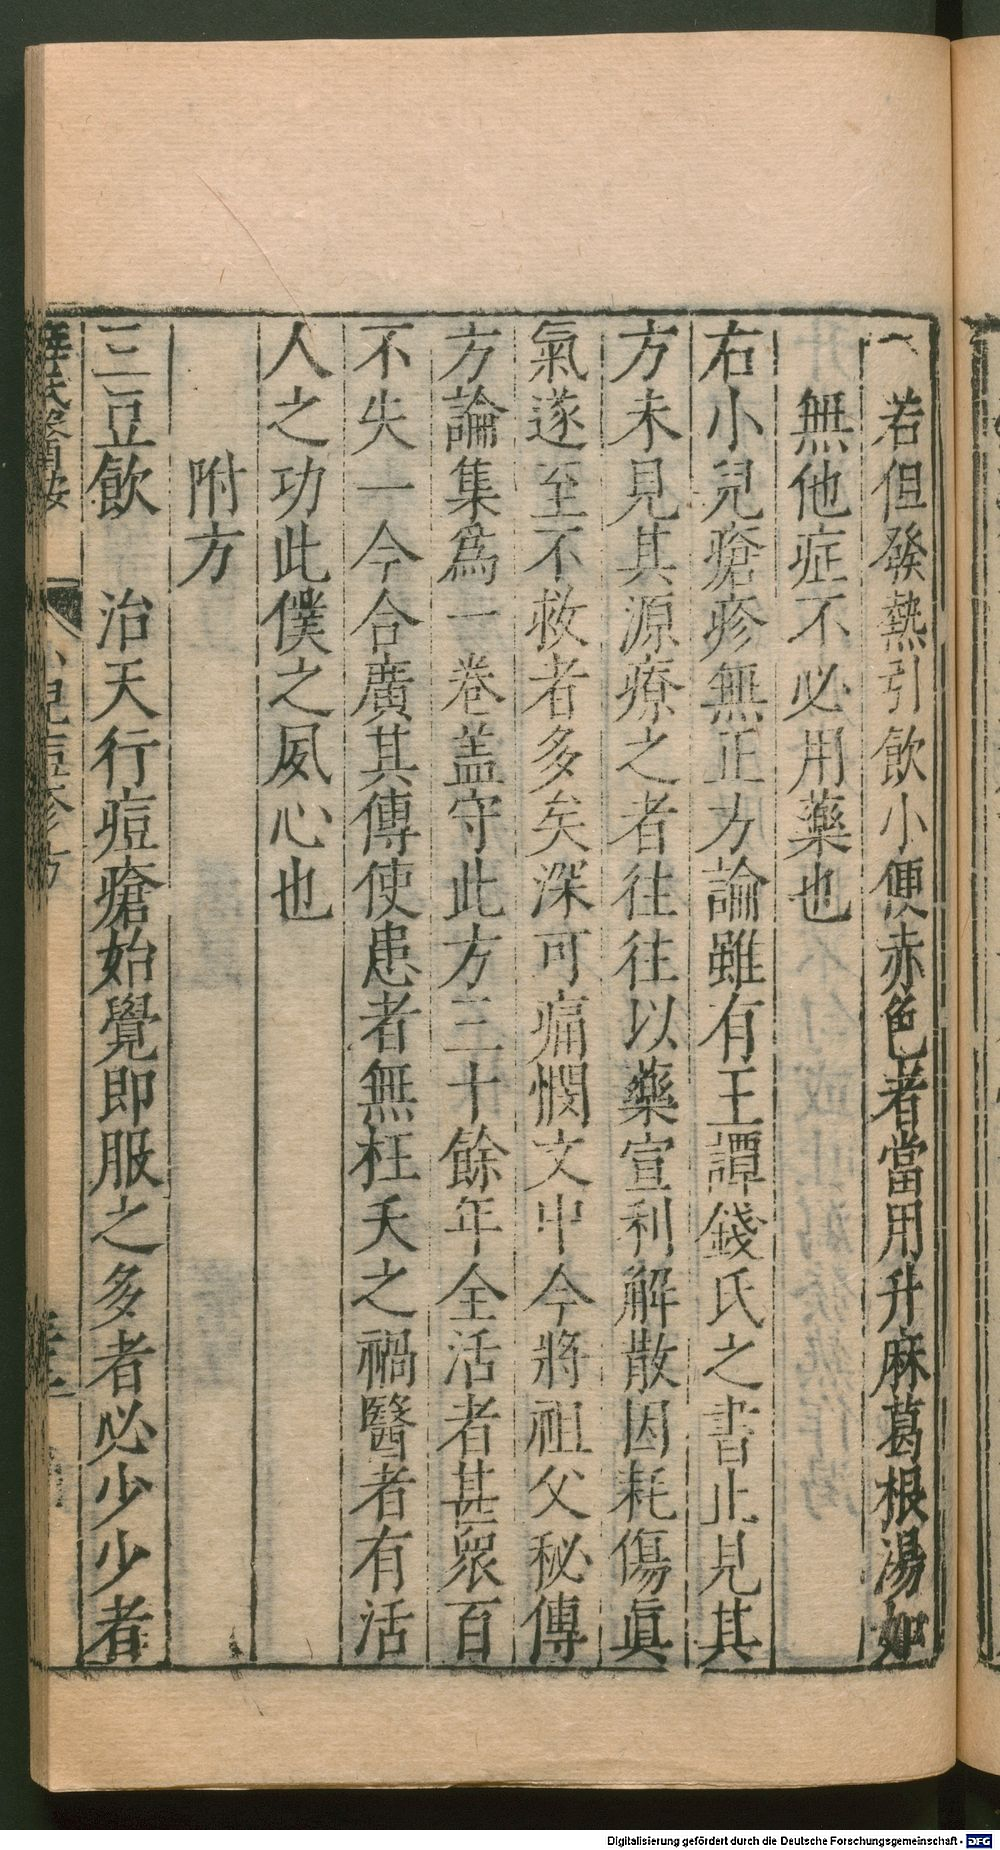 一若但發熱引飲小便赤色者當用升麻葛根湯如
無他症不必用藥也
右小兒瘡疹無正方論雖有王譚錢氏之書止見其
方未見其源療之者往往以藥宣利解散因耗傷眞
氣遂至不救者多矣深可痛憫文中今將祖父秘傳
方論集爲一卷盖守此方三十餘年全活者甚衆百
不失一今合廣其傳使患者無枉夭之禍醫者有活
人之功此僕之夙心也
附方
三豆飲 治天行痘瘡始覺即服之多者必少少者
薛氏醫按 小兒痘疹方
Digitalisierung gefördert durch die Deutsche Forschungsgemeinschaft - DFG